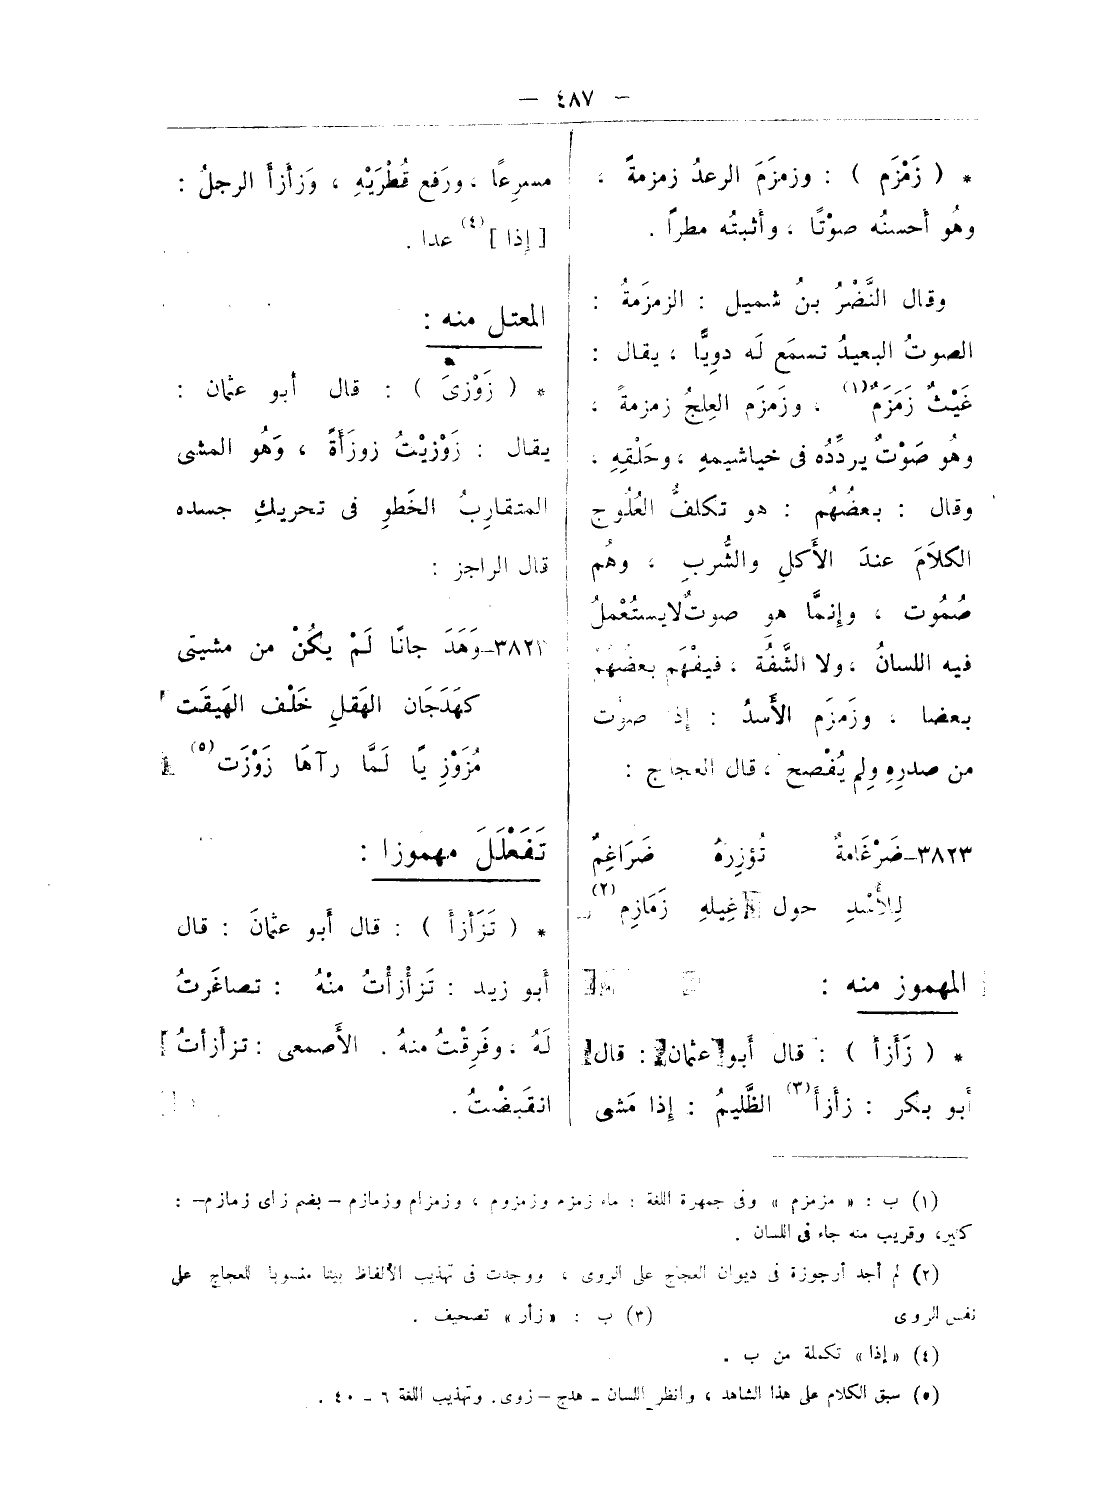 — ٤٨٧ —
* ( زَمْزَم ) : وزمزَمَ الرعدُ زمزمةً ،
وهُو أحسنُه صوْتًا ، وأثبتُه مطراً .
وقال النَّضْرُ بنُ شميل : الزمزَمةُ :
الصوتُ البعيدُ تسمَع لَه دوِيًّا ، يقال :
غَيْثٌ زَمَزَمٌ (١) ، وزَمزَم العِلجُ زمزمةً ،
وهُو صَوْتٌ يردِّدُه فى خياشيمهِ ، وحَلْقِهِ .
وقال : بعضُهُم : هو تكلفُ العُلُوج
الكلاَمَ عندَ الأَكلِ والشُّربِ ، وهُم
صُمُوت ، وإنمَّا هو صوتٌ لايستُعْملُ
فيه اللسانُ ، ولا الشَّفُة ، فيفْهَم بعضُهُمْ
بعضا ، وزَمزَم الأَسدُ : إذا صوَّت
من صدرِهِ ولم يُفْصح ، قال العجاج :
٣٨٢٣-ضَرْغَامةٌ تُؤزِرهُ ضَرَاغِمٌ
لِلأُسْدِ حول غِيلهِ زَمَازِم (٢)
المهموز منه :
* ( زَأَزأ ) : قال أبو عثمان : قال
أبو بكر : زأزأ (٣) الظَّليمُ : إذا مَشى
مسرِعًا ، ورَفع قُطْرَيْهِ ، وَزأزأ الرجلُ :
[ إذا ] (٤) عدا .
المعتل منه :
* ( زَوْزىَ ) : قال أبو عثمان :
يقال : زَوْزيْتُ زوزَأةً ، وَهُو المشى
المتقارِبُ الخَطوِ فى تحريكِ جسده
قال الراجز :
٣٨٢٤-وَهَدَ جانًا لَمْ يكُنْ من مشيتى
كهَدَجَان الهَقلِ خَلْف الهَيقَت
مُزَوْزِ يًا لَمَّا رآهَا زَوْزَت (٥)
تَفَعْلَلَ مهموزا :
* ( تَزَأزأ ) : قال أبو عثمانَ : قال
أبو زيد : تَزأزأْتُ منْهُ : تصاغَرتُ
لَهُ ، وفَرِقْتُ منهُ . الأَصمعى : تزأزأتُ
انقَبضْتُ .
(١) ب : « مزمزم » وفى جمهرة اللغة : ماء زمزم وزمزوم ، وزمزام وزمازم – بضم زاى زمازم– :
كثير، وقريب منه جاء فى اللسان .
(٢) لم أجد أرجوزة فى ديوان العجاج على الروى ، ووجدت فى تهذيب الألفاظ بيتا منسوبا للعجاج على
نفس الروى (٣) ب : « زأر » تصحيف .
(٤) « إذا » تكملة من ب .
(٥) سبق الكلام على هذا الشاهد ، وانظر اللسان – هدج – زوى . وتهذيب اللغة ٦ – ٤٠ .